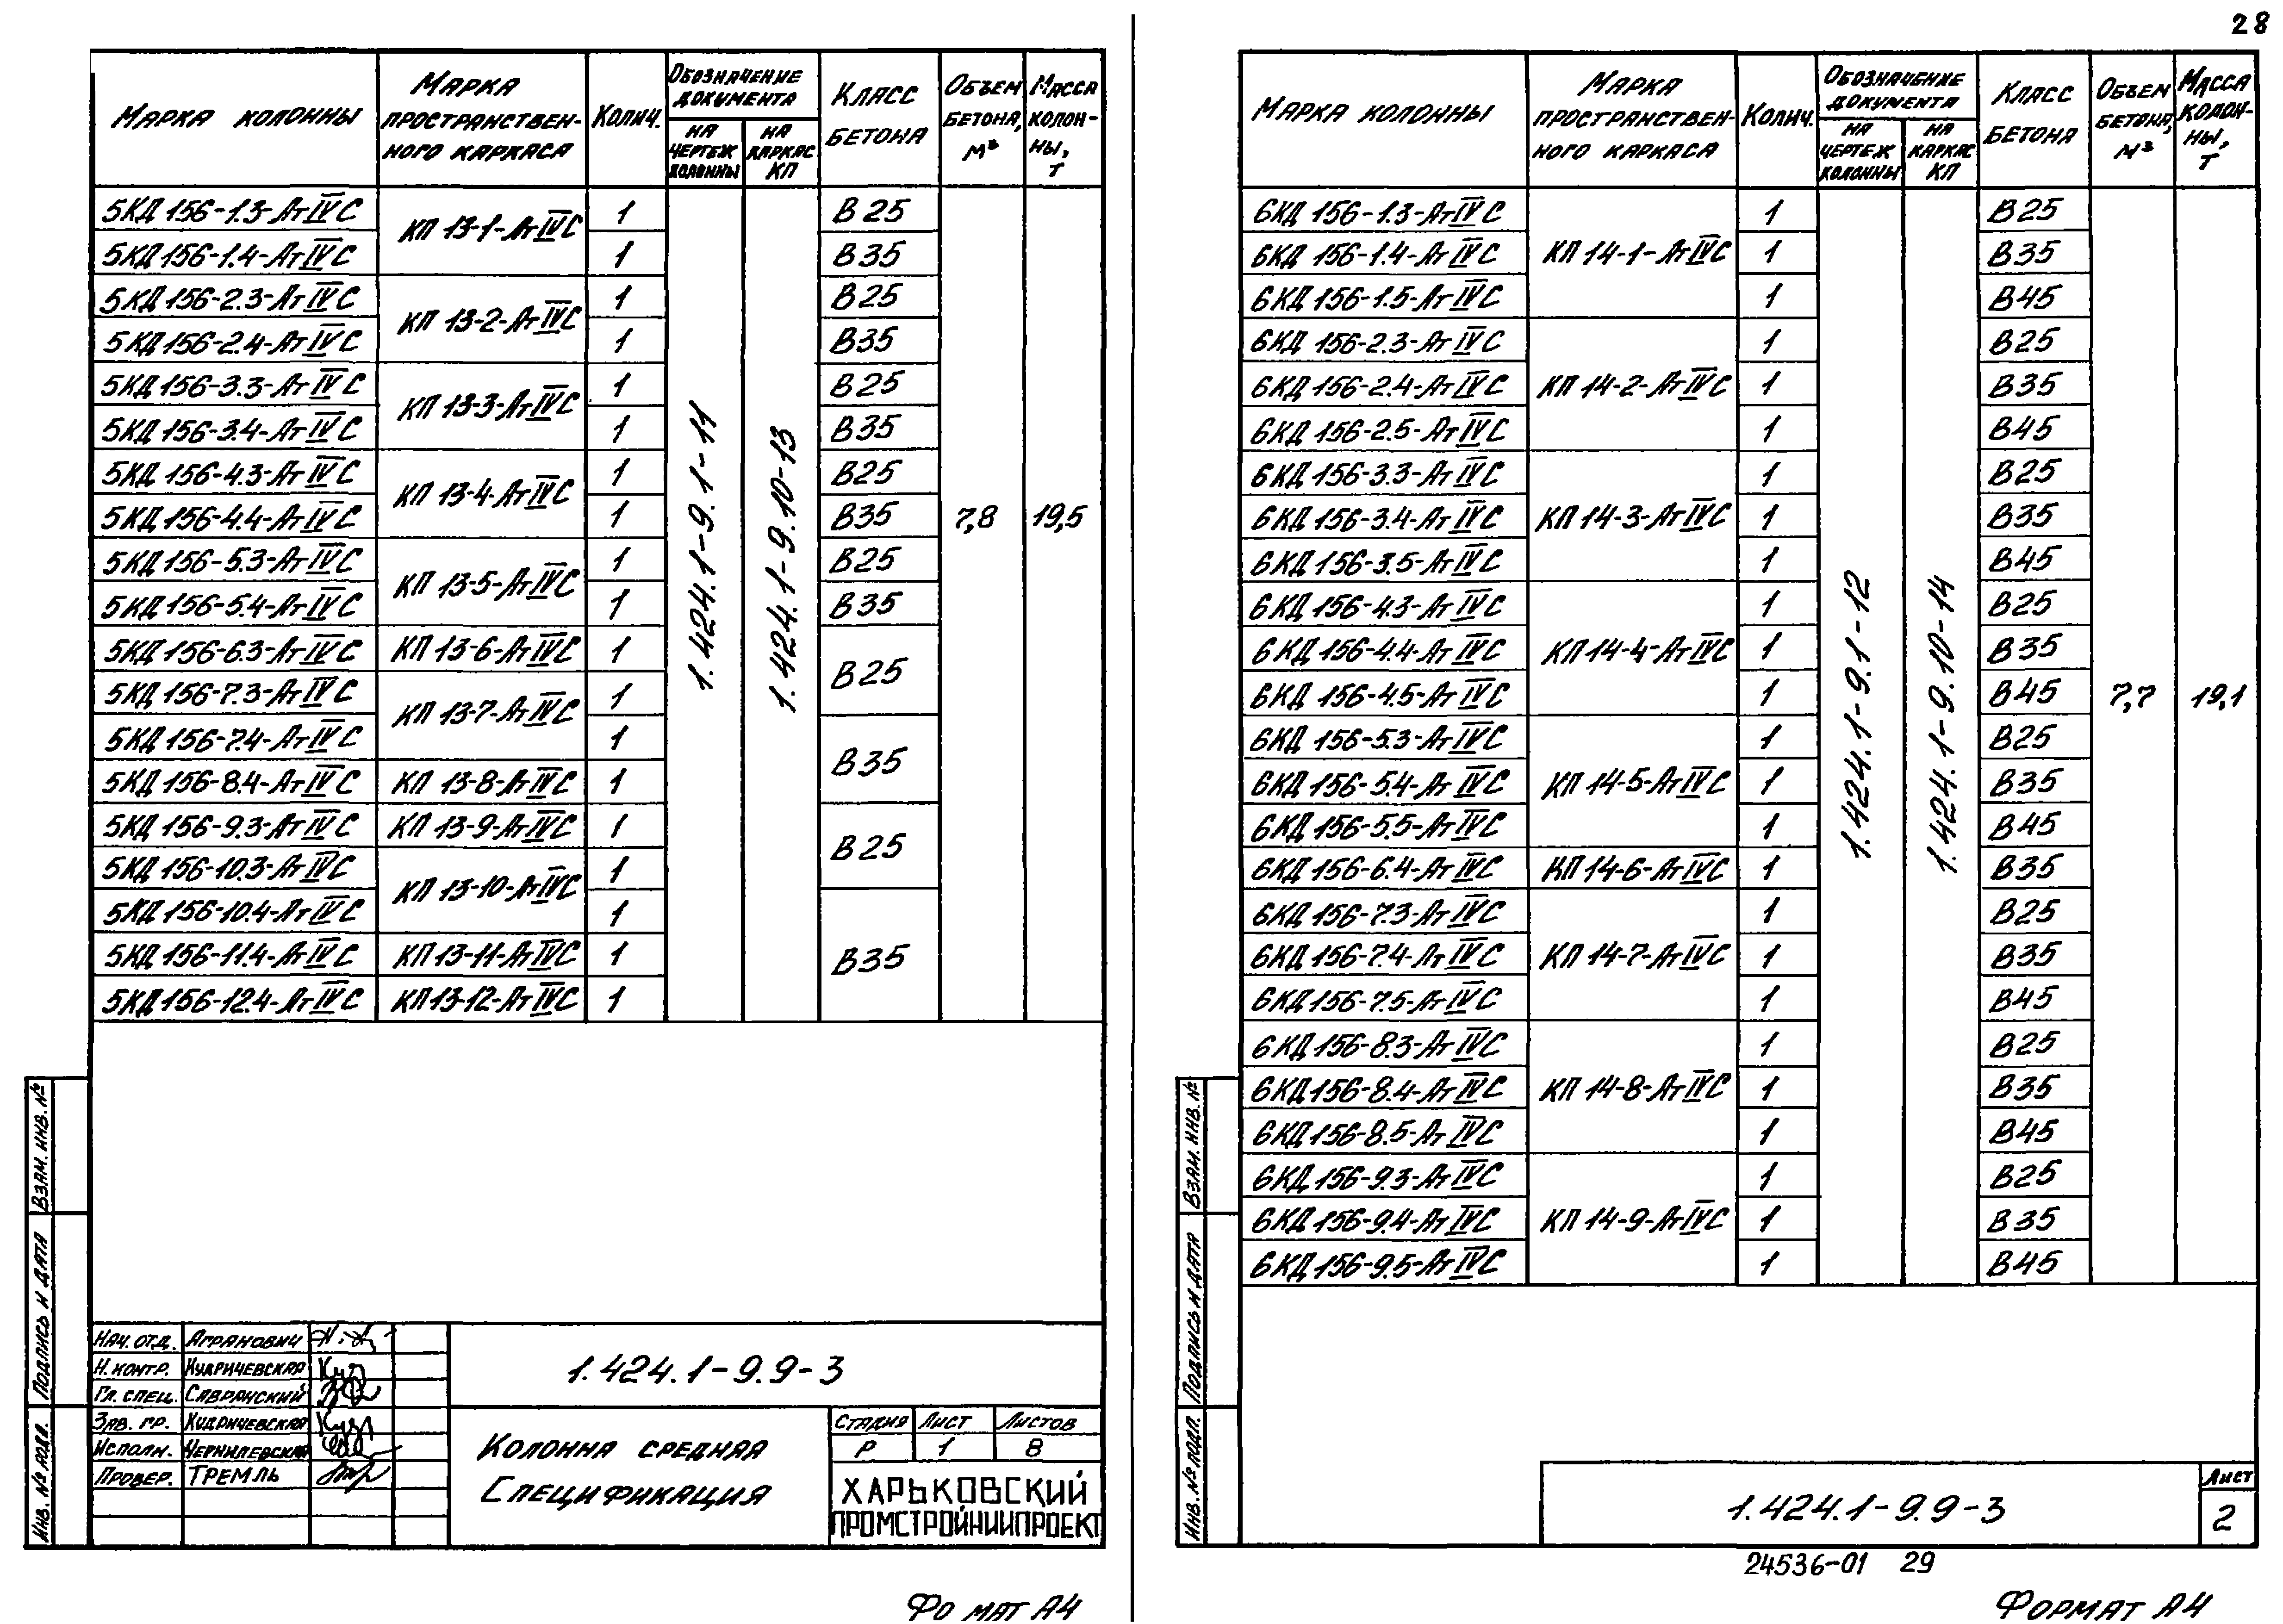 28
Марка колонны | Марка пространствен-ного каркаса | Колич. | Обозначение документа на чертеж колонны | Обозначение документа на каркас КП | Класс бетона | Объем бетона, м³ | Масса колон-ны, т
5КД 156-1.3-АтIVС | КП 13-1-АтIVС | 1 | 1.424.1-9.1-11 | 1.424.1-9.10-13 | В25 | 7,8 | 19,5
5КД 156-1.4-АтIVС | 1 | В35
5КД 156-2.3-АтIVС | КП 13-2-АтIVС | 1 | В25
5КД 156-2.4-АтIVС | 1 | В35
5КД 156-3.3-АтIVС | КП 13-3-АтIVС | 1 | В25
5КД 156-3.4-АтIVС | 1 | В35
5КД 156-4.3-АтIVС | КП 13-4-АтIVС | 1 | В25
5КД 156-4.4-АтIVС | 1 | В35
5КД 156-5.3-АтIVС | КП 13-5-АтIVС | 1 | В25
5КД 156-5.4-АтIVС | 1 | В35
5КД 156-6.3-АтIVС | КП 13-6-АтIVС | 1 | В25
5КД 156-7.3-АтIVС | КП 13-7-АтIVС | 1
5КД 156-7.4-АтIVС | 1 | В35
5КД 156-8.4-АтIVС | КП 13-8-АтIVС | 1
5КД 156-9.3-АтIVС | КП 13-9-АтIVС | 1 | В25
5КД 156-10.3-АтIVС | КП 13-10-АтIVС | 1
5КД 156-10.4-АтIVС | 1 | В35
5КД 156-11.4-АтIVС | КП 13-11-АтIVС | 1
5КД 156-12.4-АтIVС | КП 13-12-АтIVС | 1
Взам. инв. №
Подпись и дата
Инв. № подл.
Нач. отд. | Агранович
Н. контр. | Кудричевская
Гл. спец. | Савранский
Зав. гр. | Кудричевская
Исполн. | Чернилевская
Провер. | Тремль
1.424.1-9.9-3
Колонна средняя
Спецификация
Стадия | Лист | Листов
Р | 1 | 8
ХАРЬКОВСКИЙ
ПРОМСТРОЙНИИПРОЕКТ
Фо мат А4
Марка колонны | Марка пространствен-ного каркаса | Колич. | Обозначение документа на чертеж колонны | Обозначение документа на каркас КП | Класс бетона | Объем бетона, м³ | Масса колон-ны, т
6КД 156-1.3-АтIVС | КП 14-1-АтIVС | 1 | 1.424.1-9.1-12 | 1.424.1-9.10-14 | В25 | 7,7 | 19,1
6КД 156-1.4-АтIVС | 1 | В35
6КД 156-1.5-АтIVС | 1 | В45
6КД 156-2.3-АтIVС | КП 14-2-АтIVС | 1 | В25
6КД 156-2.4-АтIVС | 1 | В35
6КД 156-2.5-АтIVС | 1 | В45
6КД 156-3.3-АтIVС | КП 14-3-АтIVС | 1 | В25
6КД 156-3.4-АтIVС | 1 | В35
6КД 156-3.5-АтIVС | 1 | В45
6КД 156-4.3-АтIVС | КП 14-4-АтIVС | 1 | В25
6КД 156-4.4-АтIVС | 1 | В35
6КД 156-4.5-АтIVС | 1 | В45
6КД 156-5.3-АтIVС | КП 14-5-АтIVС | 1 | В25
6КД 156-5.4-АтIVС | 1 | В35
6КД 156-5.5-АтIVС | 1 | В45
6КД 156-6.4-АтIVС | КП 14-6-АтIVС | 1 | В35
6КД 156-7.3-АтIVС | КП 14-7-АтIVС | 1 | В25
6КД 156-7.4-АтIVС | 1 | В35
6КД 156-7.5-АтIVС | 1 | В45
6КД 156-8.3-АтIVС | КП 14-8-АтIVС | 1 | В25
6КД 156-8.4-АтIVС | 1 | В35
6КД 156-8.5-АтIVС | 1 | В45
6КД 156-9.3-АтIVС | КП 14-9-АтIVС | 1 | В25
6КД 156-9.4-АтIVС | 1 | В35
6КД 156-9.5-АтIVС | 1 | В45
Взам. инв. №
Подпись и дата
Инв. № подл.
1.424.1-9.9-3
Лист
2
24536-01 29
Формат А4